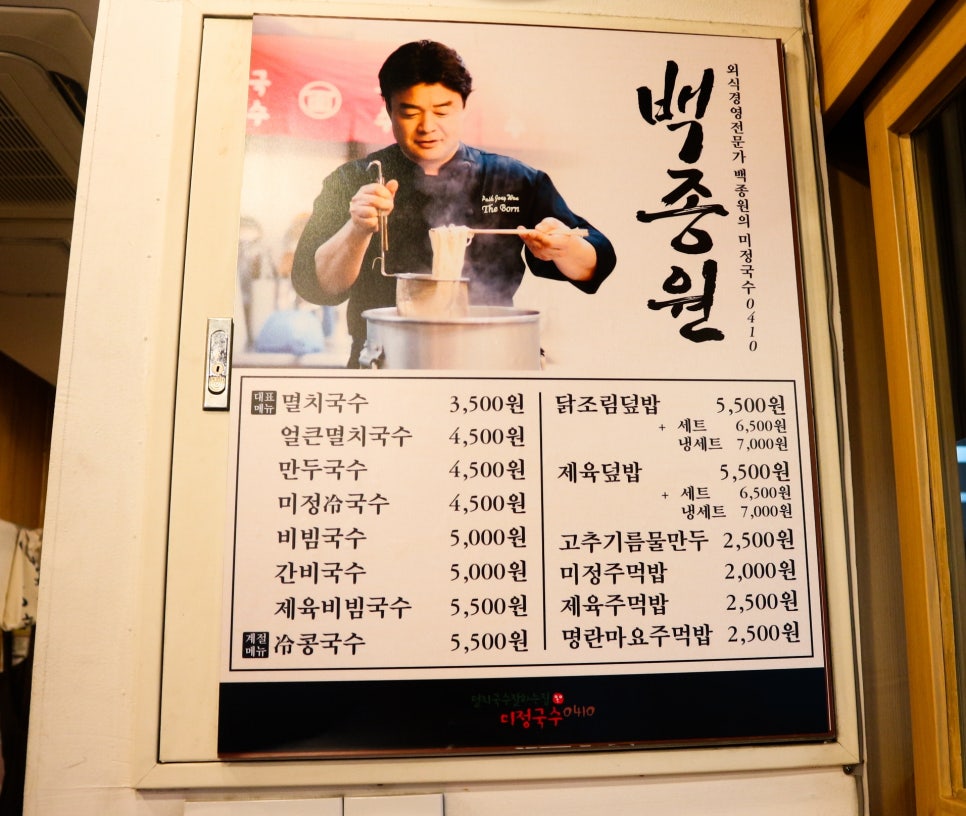 국수
백종원
외식경영전문가 백종원의 미정국수0410
Paik Jong Won
The Born
대표메뉴 멸치국수 3,500원
얼큰멸치국수 4,500원
만두국수 4,500원
미정冷국수 4,500원
비빔국수 5,000원
간비국수 5,000원
제육비빔국수 5,500원
계절메뉴 冷콩국수 5,500원
닭조림덮밥 5,500원
+ 세트 6,500원
냉세트 7,000원
제육덮밥 5,500원
+ 세트 6,500원
냉세트 7,000원
고추기름물만두 2,500원
미정주먹밥 2,000원
제육주먹밥 2,500원
명란마요주먹밥 2,500원
미정국수0410